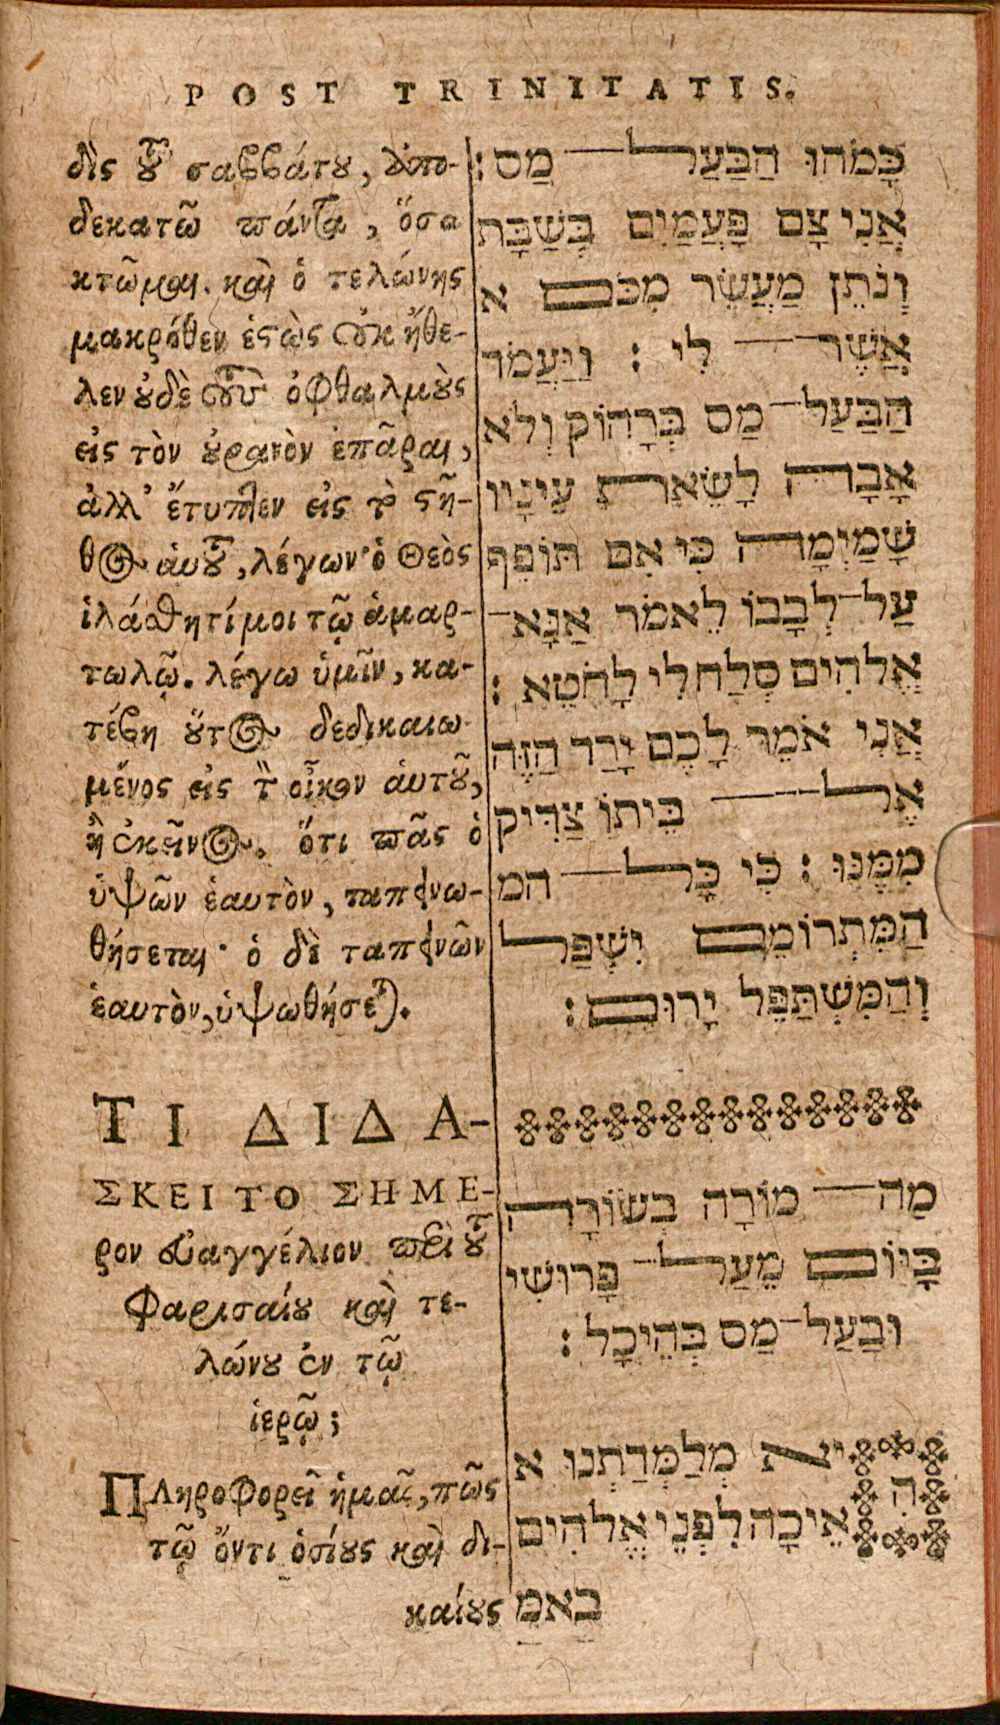 POST TRINITATIS.
δὶς τοῦ σαββάτου, ἀπο-
δεκατῶ πάντα, ὅσα
κτῶμαι. καὶ ὁ τελώνης
μακρόθεν ἑστὼς οὐκ ἤθε-
λεν οὐδὲ τοὺς ὀφθαλμοὺς
εἰς τὸν οὐρανὸν ἐπᾶραι,
ἀλλ' ἔτυπτεν εἰς τὸ στῆ-
θος ἁυτοῦ, λέγων· ὁ Θεὸς
ἱλάσθητί μοι τῷ ἁμαρ-
τωλῷ. λέγω ὑμῖν, κα-
τέβη οὕτος δεδικαιω-
μένος εἰς τὸν οἶκον ἁυτοῦ,
ἢ ἐκεῖνος. ὅτι πᾶς ὁ
ὑψῶν ἑαυτὸν, ταπεινω-
θήσεται· ὁ δὲ ταπεινῶν
ἑαυτὸν, ὑψωθήσεται.
ΤΙ ΔΙΔΑ-
ΣΚΕΙ ΤΟ ΣΗΜΕ-
ρον εὐαγγέλιον περὶ τοῦ
Φαρισαίου καὶ τε-
λώνου ἐν τῷ
ἱερῷ;
Πληροφορεῖ ἡμᾶς, πῶς
τῷ ὄντι ὁσίους καὶ δι-
καίους
כָּמֹהוּ הַבַּעַל מַס׃
אֲנִי צָם פָּעֲמַיִם בְּשַׁבָּת
וְנֹתֵן מַעֲשֵׂר מִכֹּם א
אֲשֶׁר לִי׃ וַיַּעֲמֹד
הַבַּעַל־מַס בְּרָהוֹק וְלֹא
אָבָה לָשֵׂאֵת עֵינָיו
שָׁמַיְמָה כִּי אִם תּוֹפֵף
עַל־לְבָבוֹ לֵאמֹר אַנָּא־
אֱלֹהִים סְלַח־לִי לָחֹטֵא׃
אֲנִי אֹמֵר לָכֶם יָרַד הַזֶּה
אֶל בֵּיתוֹ צַדִּיק
מִמֶּנּוּ׃ כִּי כָּל המ
הַמִּתְרוֹמֵם יִשְׁפַּל
וְהַמִּשְׁתַּפֵּל יָרוּם׃
מַה־ מוֹרָה בְשׂוֹרָה
בַּיּוֹם מֵעַל־ פָּרוּשִׁי
וּבָעַל־מַס בְּהֵיכָל׃
הִיא מְלַמְּדַתְנוּ א
אֵיכָה לִפְנֵי אֱלֹהִים
בֶאמ